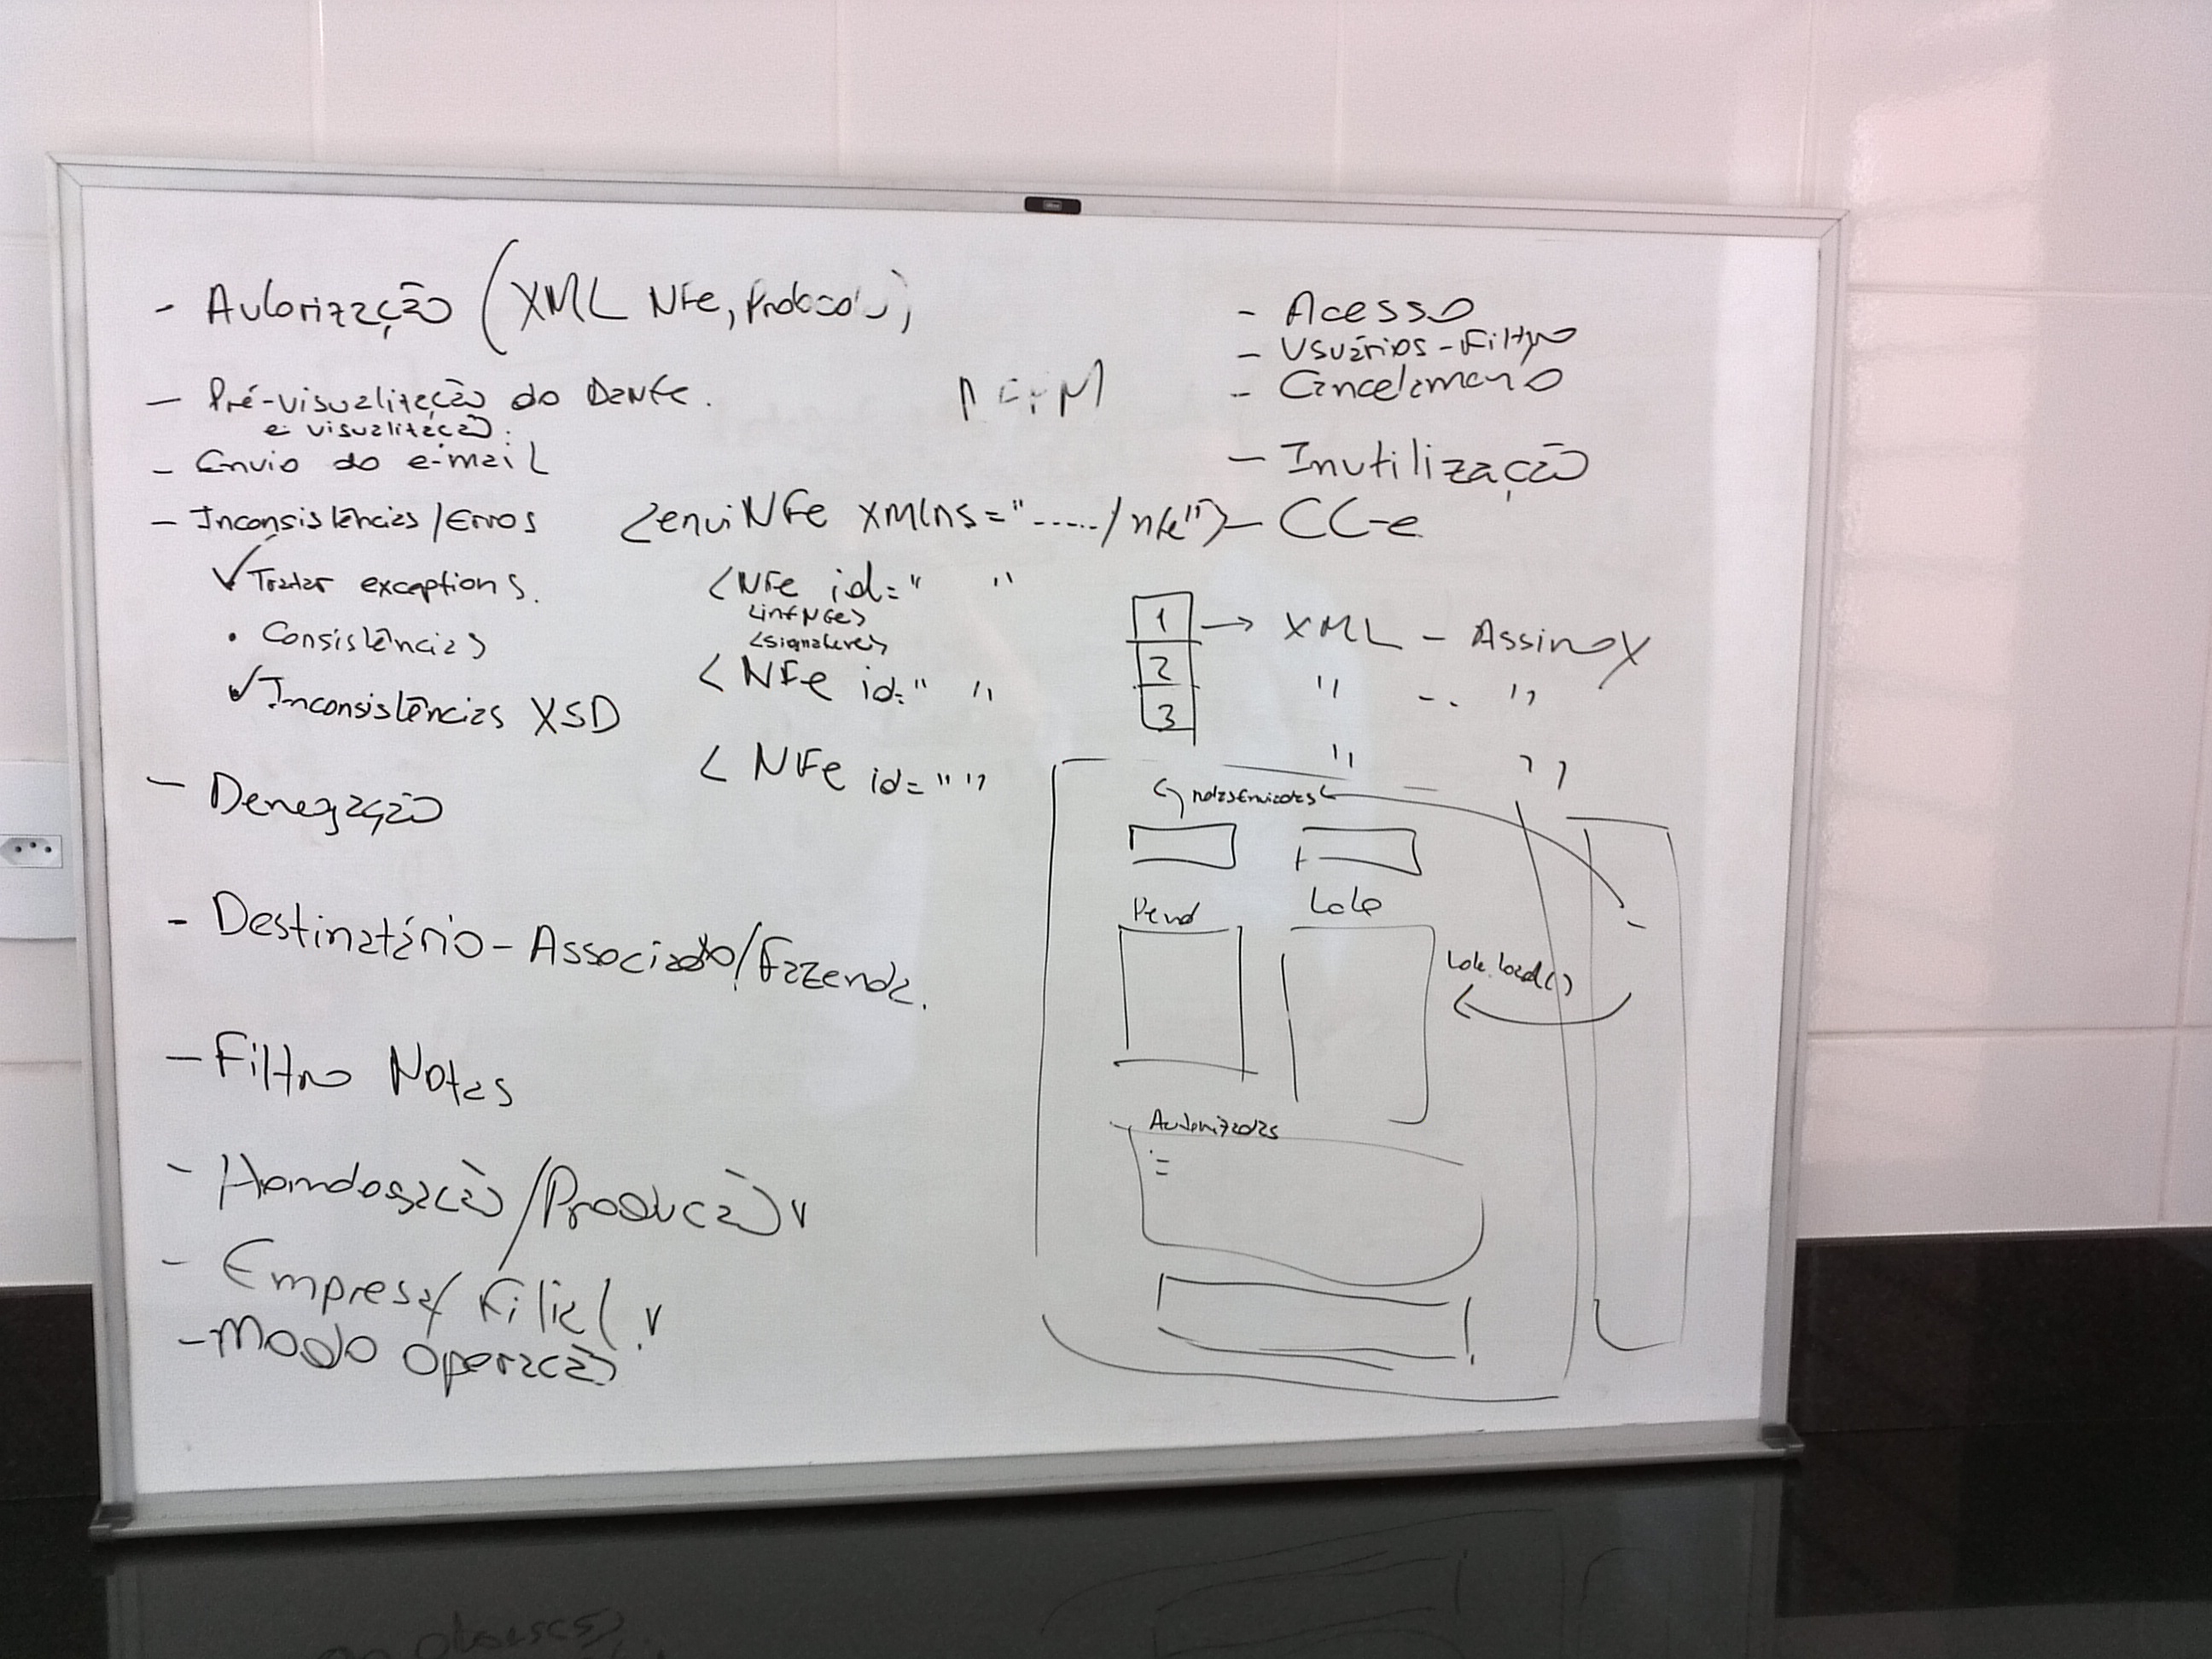 - Autorização (XML NFe, Protocolo)
- Pré-visualização do Danfe.
e visualização.
- Envio do e-mail
- Inconsistências/Erros
✓ Tratar exceptions.
• Consistências
✓ Inconsistências XSD
- Denegação
- Destinatário - Associado/Fazenda.
- Filtro Notas
- Homologação/Produção v
- Empresa/Filial v
- Modo Operação
<enviNFe xmlns="...../nfe">
<NFe id=" "
<infNFe>
<signature>
<NFe id=" "
<NFe id=" "
- Acesso
- Usuários - Filtro
- Cancelamento
- Inutilização
- CC-e
1 → XML - Assino
2 " - "
3 " "
notasEnviadas
Pend Lote
Lote.load()
Autorizadas